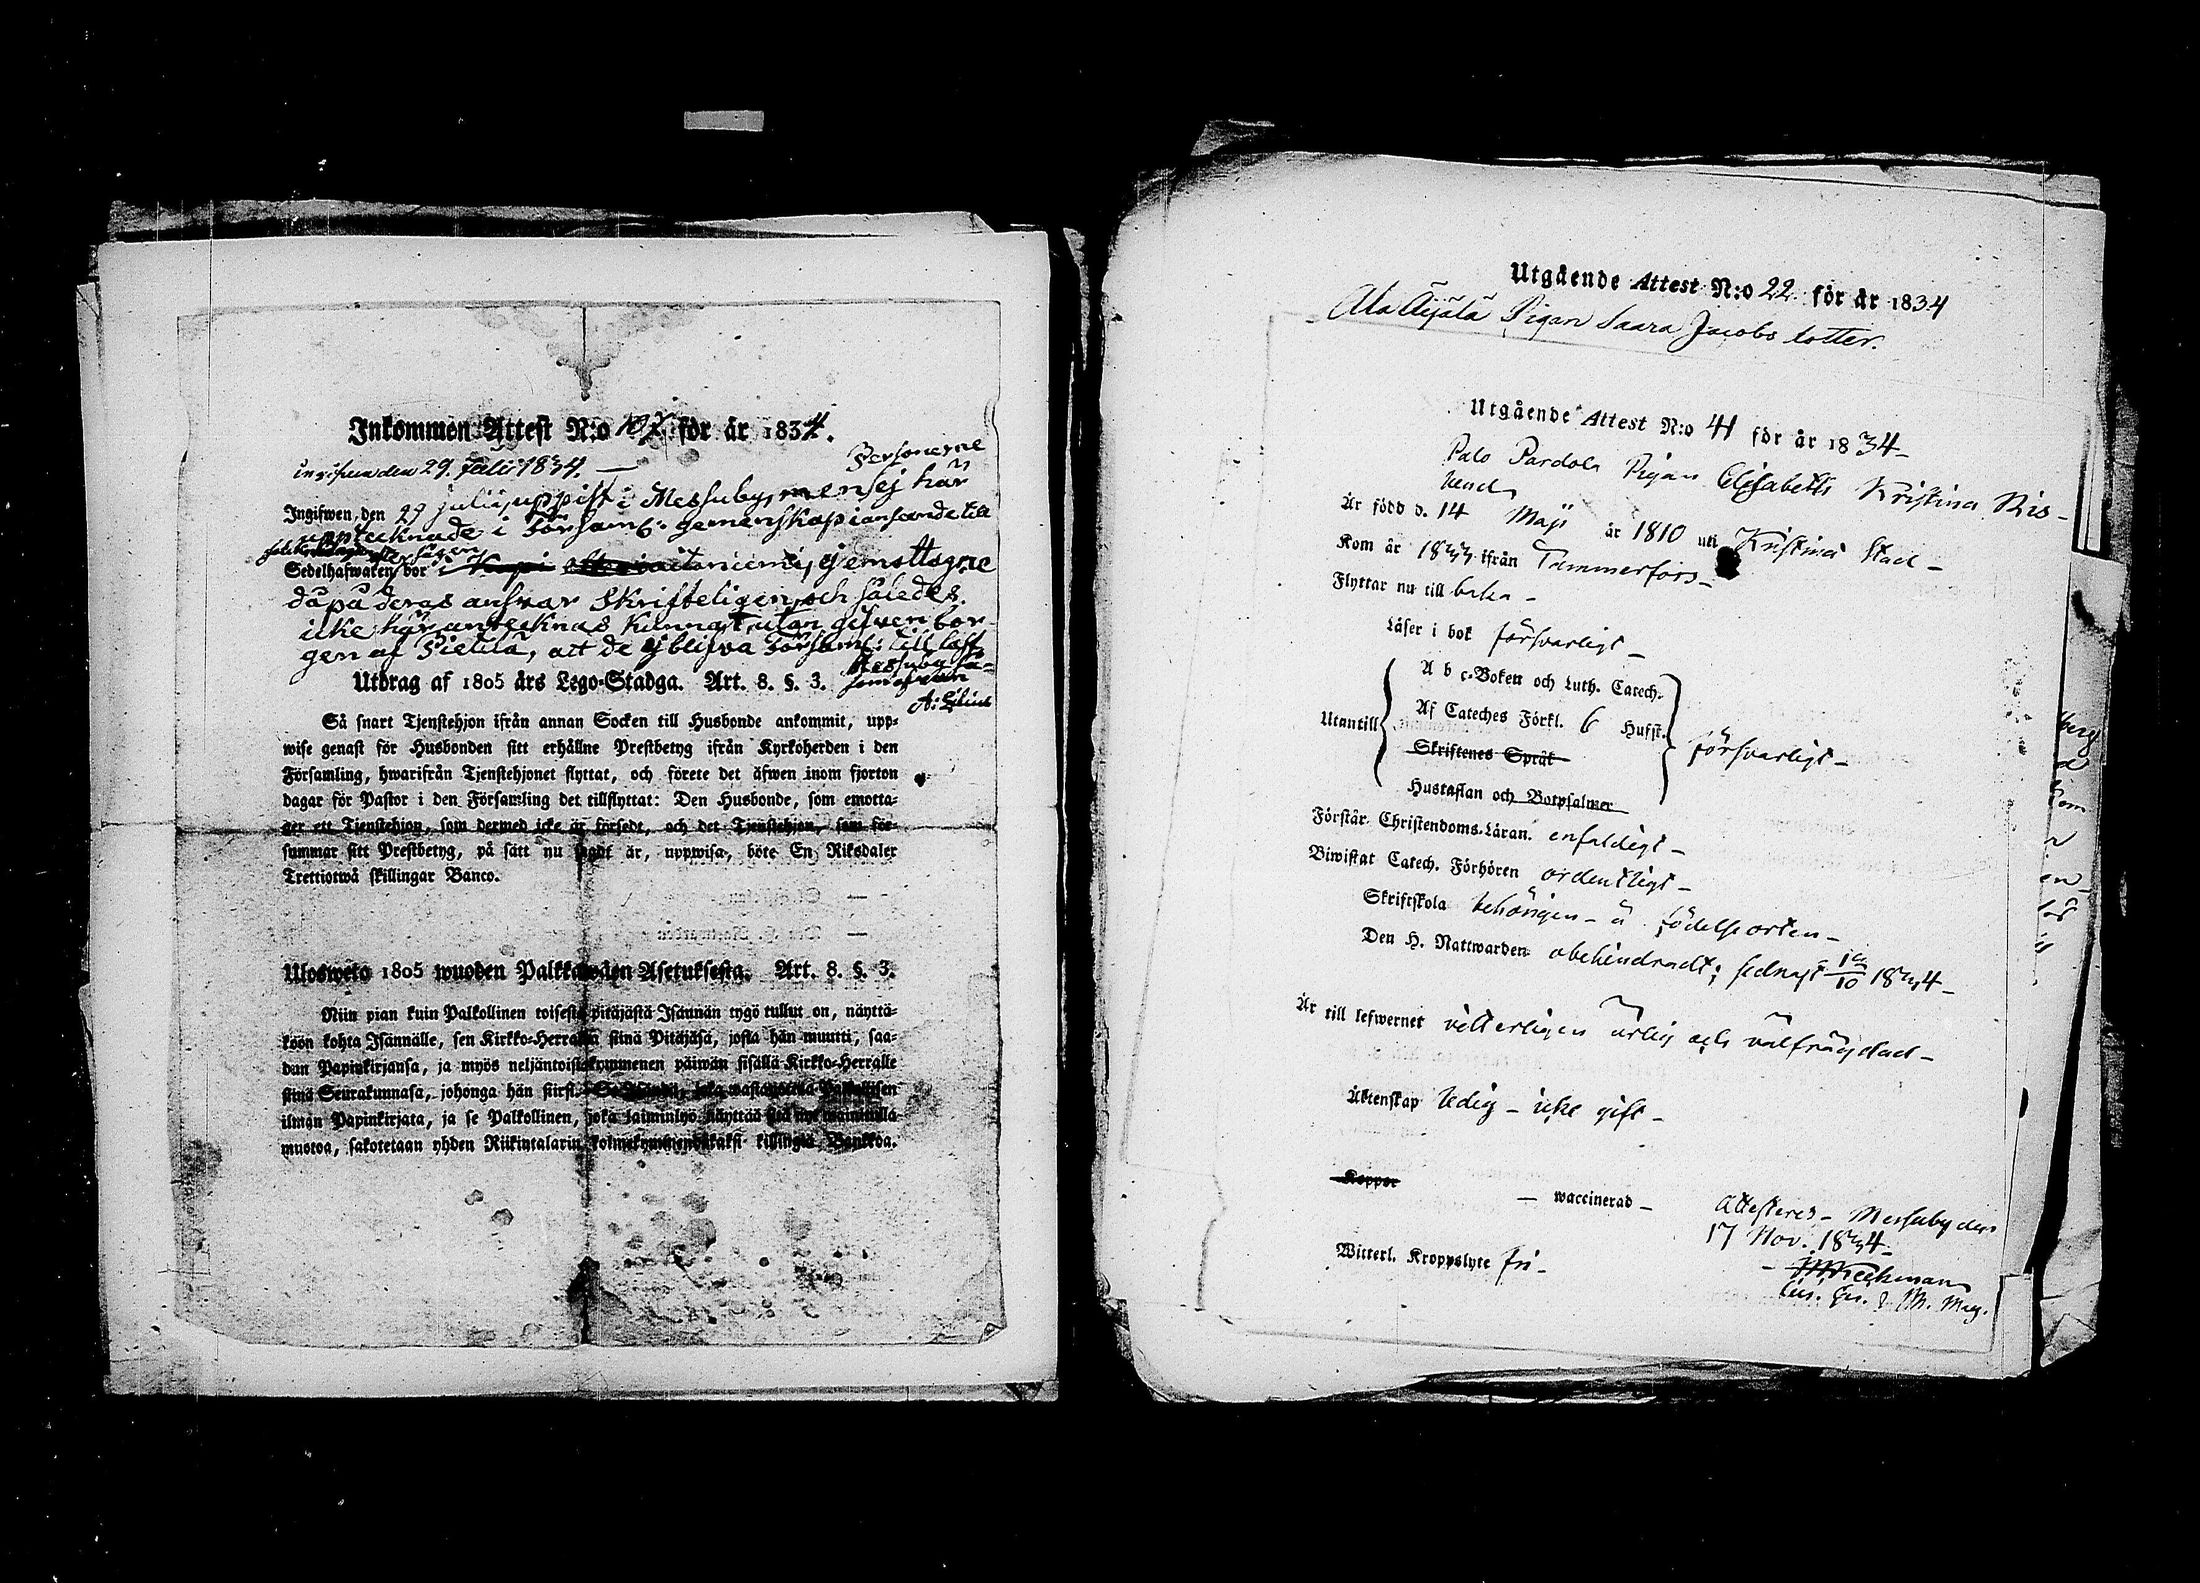 Inkommen Attest N:o 10 för år 1834.
den 29. Julii 1834. —
Personerne
Ingifwen den 29 julii, uppist i Messuby, men ej här
upptecknade i församl: gemenskap i anseende till
Sedelhafwaren bor i gemottagne
då på deras answar skrifteligen, och således
icke här antecknas kunnat, utan gifven bor-
gen af Pietilä, att de ej blifva församl: till last
Messuby
Utdrag af 1805 års Lego-Stadga. Art. 8. §. 3.
Så snart Tjenstehjon ifrån annan Socken till Husbonde ankommit, upp-
wise genast för Husbonden sitt erhållne Prestbetyg ifrån Kyrkoherden i den
Församling, hwarifrån Tjenstehjonet flyttat, och förete det äfwen inom fjorton
dagar för Pastor i den Församling det tillflyttat: Den Husbonde, som emotta-
ger ett Tjenstehjon, som dermed icke är försedt, och det Tjenstehjon, som för-
summar sitt Prestbetyg, på sätt nu sagdt är, uppwisa, böte En Riksdaler
Trettiotwå skillingar Banco.
Ulosweto 1805 wuoden Palkkawäen Asetuksesta. Art. 8. §. 3.
Niin pian kuin Palkollinen toisesta pitäjästä Isännän tygö tullut on, näyttä-
köön kohta Isännälle, sen Kirkko-Herralda siinä Pitäjäsä, josta hän muutti, saa-
dun Papinkirjansa, ja myös neljäntoistakymmenen päiwän sisällä Kirkko-Herralle
siinä Seurakunnasa, johonga hän siirsi. Se Isändä, joka wastanottaa Palkollisen
ilman Papinkirjata, ja se Palkollinen, joka laiminlyö näyttää sitä nyt mainitulla
muotoa, sakotetaan yhden Riikintalarin kolmekymmendäkaksi killingiä Bankkoa.
Utgående Attest N:o 22 för år 1834
Ala Äijälä Pigan Saara Jacobs dotter.
Utgående Attest N:o 41 för år 1834 —
Palo Pardola Pigan Elisabeth Kristina Ris-
lund
Är född d. 14 Maji år 1810 uti Kristinæ Stad —
Kom år 1833 ifrån Tammerfors —
Flyttar nu till baka —
Läser i bok försvarligt —
A b c-Boken och Luth. Catech.
Af Cateches Förkl. 6 Hufst.
Utantill försvarligt —
Skriftenes Språk
Hustaflan och Botpsalmer
Förstår Christendoms-Läran. enfaldigt —
Biwistat Catech. Förhören ordentligt —
Skriftskola behörigen — å födelseorten —
Den H. Nattwarden obehindradt; sednast 19/10 1834 —
Är till lefwernet vitterligen ärlig och välfrägdad —
Äktenskap ledig — icke gift —
Koppor — waccinerad —
Attesteres — Messuby den
17 Nov. 1834 —
Witterl. Kroppslyte fri —